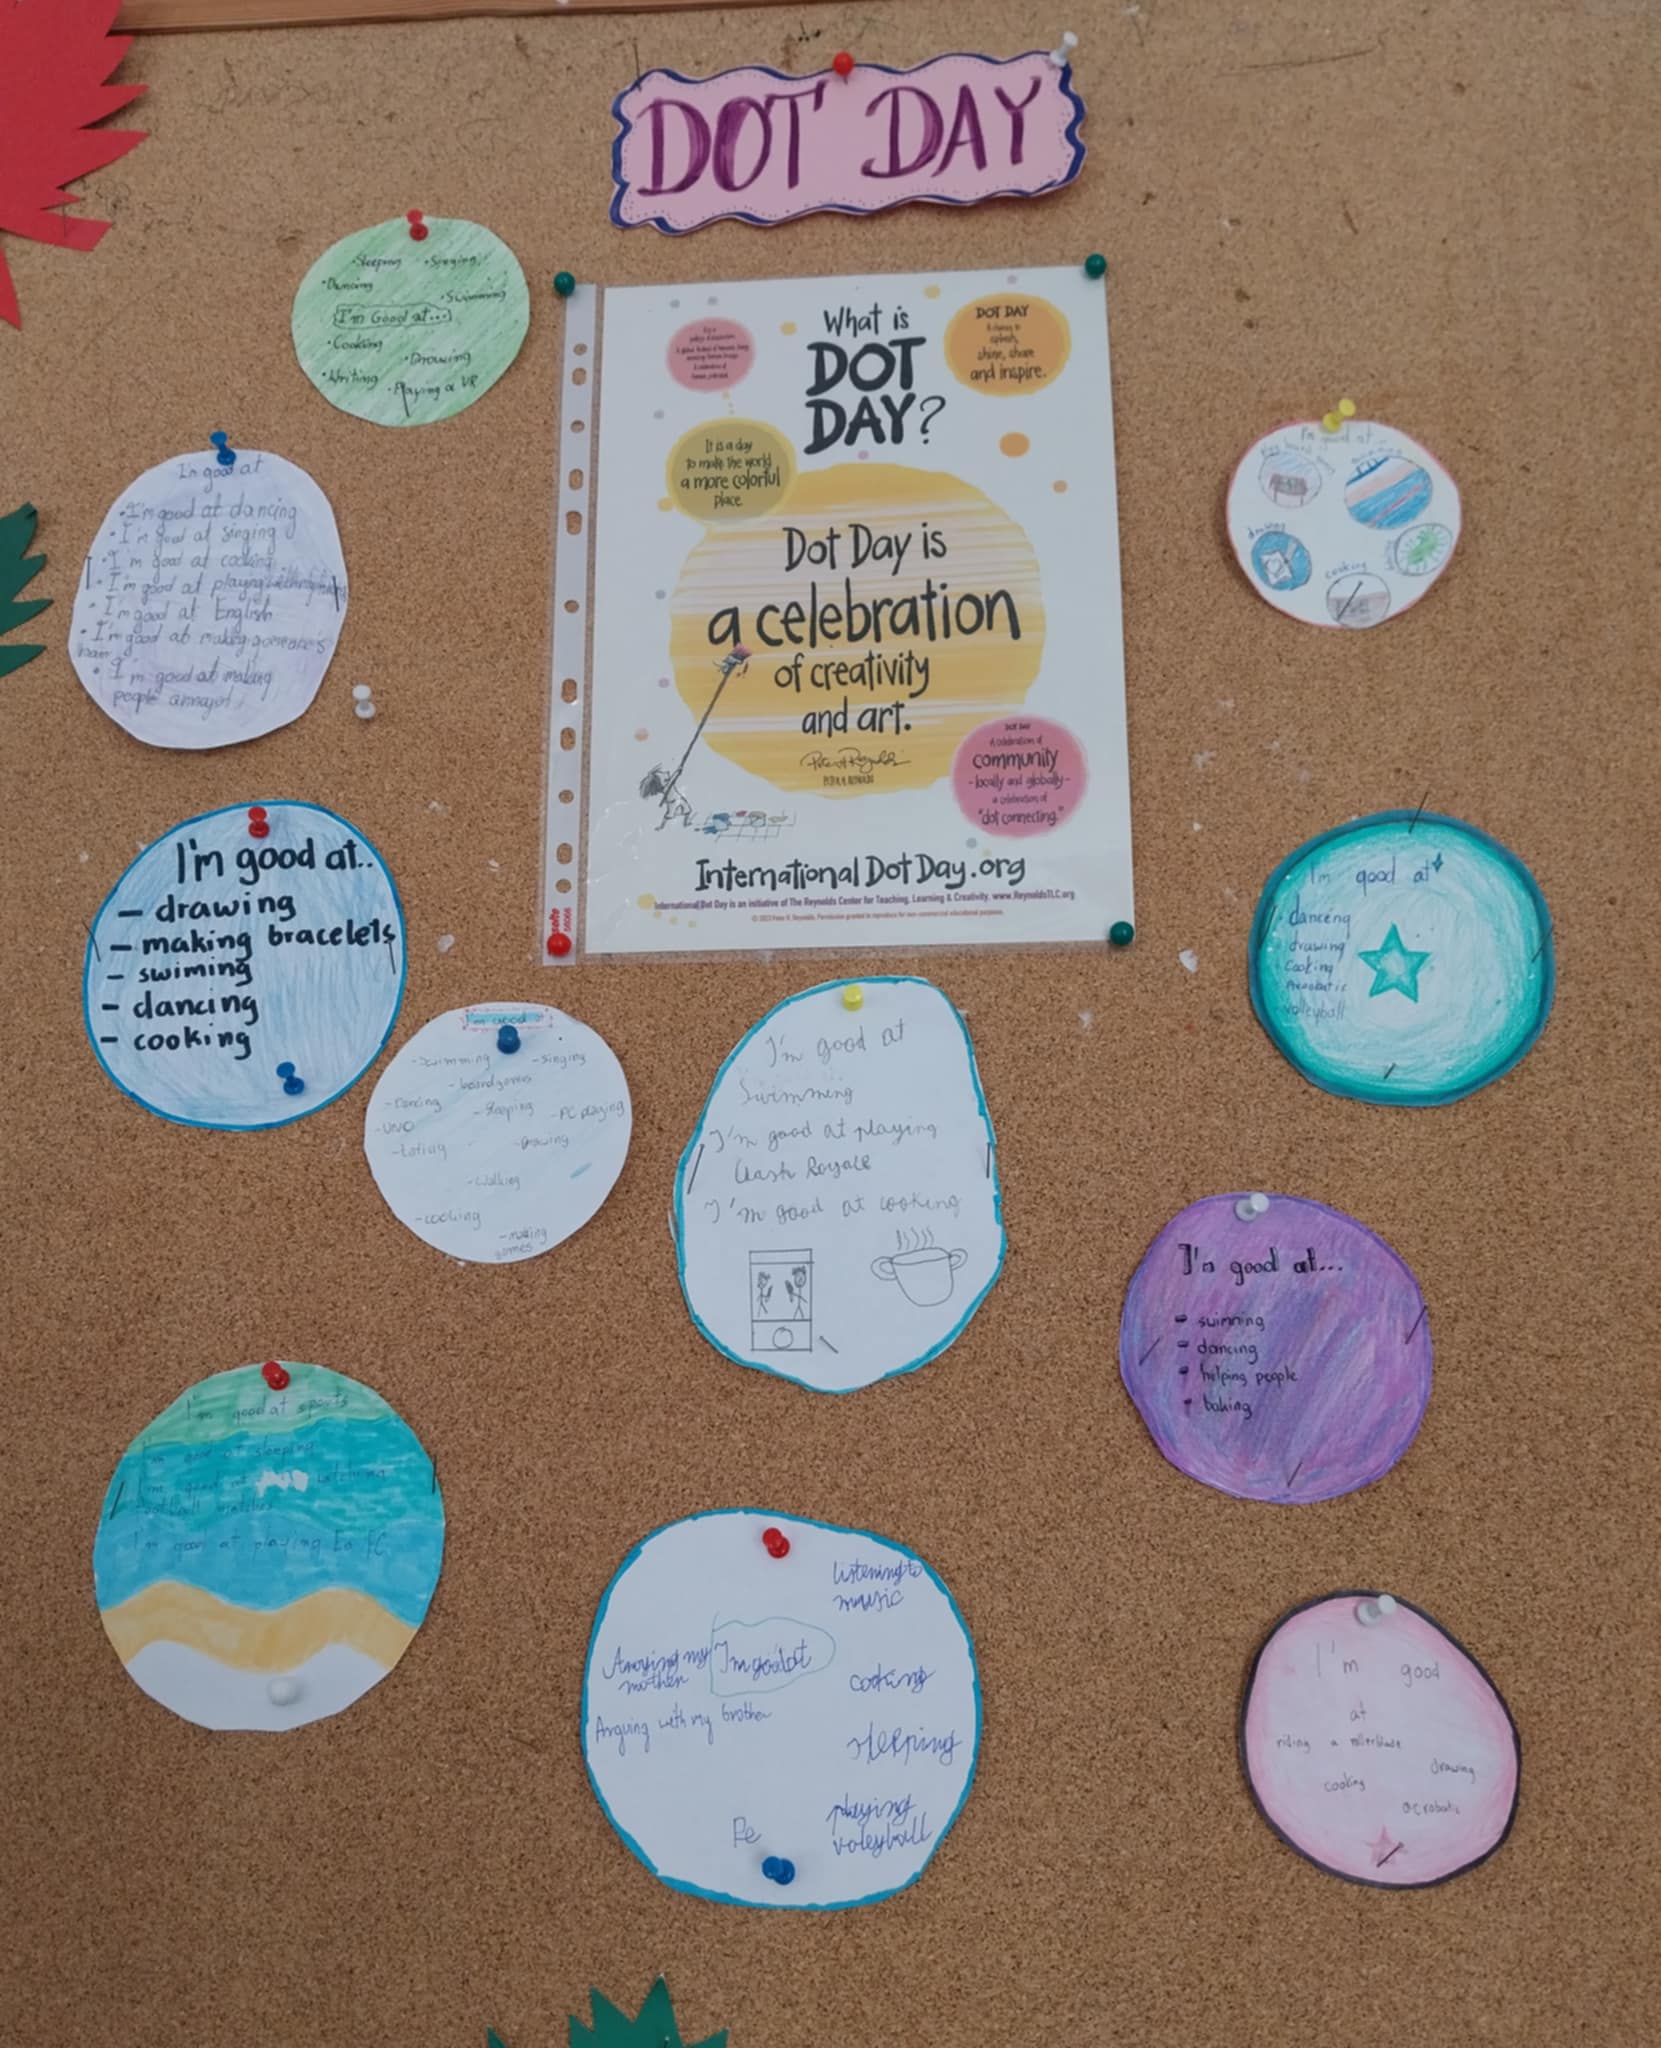 DOT DAY
•Sleeping •Singing
•Dancing •Swimming
I'm Good at...
•Cooking •Drowing
•Writing •Playing a VR
I'm good at
•I'm good at dancing
•I'm good at singing
•I'm good at cooking
•I'm good at playing
•I'm good at English
•I'm good at making someone's
hair
•I'm good at making
people annoyed
I'm good at..
– drawing
– making bracelets
– swiming
– dancing
– cooking
What is
DOT
DAY?
DOT DAY
A chance to
splash,
shine, share
and inspire.
It is a day
to make the world
a more colorful
place.
Dot Day is
a celebration
of creativity
and art.
Peter H. Reynolds
PETER H. REYNOLDS
DOT DAY
A celebration of
community
-locally and globally-
a celebration of
"dot connecting."
International Dot Day.org
International Dot Day is an initiative of The Reynolds Center for Teaching, Learning & Creativity. www.ReynoldsTLC.org
I'm good at...
drawing
cooking
I'm good at
dancing
drawing
cooking
Acrobatic
volleyball
I'm good at
-Swimming -singing
-boardgames
-Dancing -Sleeping -PC playing
-UNO
-eating -Drawing
-Walking
-cooking
-making
games
I'm good at
Swimming
I'm good at playing
Clash Royale
I'm good at cooking
I'm good at...
- swimming
- dancing
- helping people
- baking
I'm good at sports
I'm good at sleeping
I'm good at watching
football matches
I'm good at playing Ea FC
Listening to
music
Annoying my
mother
I'm good at
cooking
Arguing with my brother
sleeping
playing
voleyball
Re
I'm good
at
riding a rollerblade
drawing
cooking
acrobatic